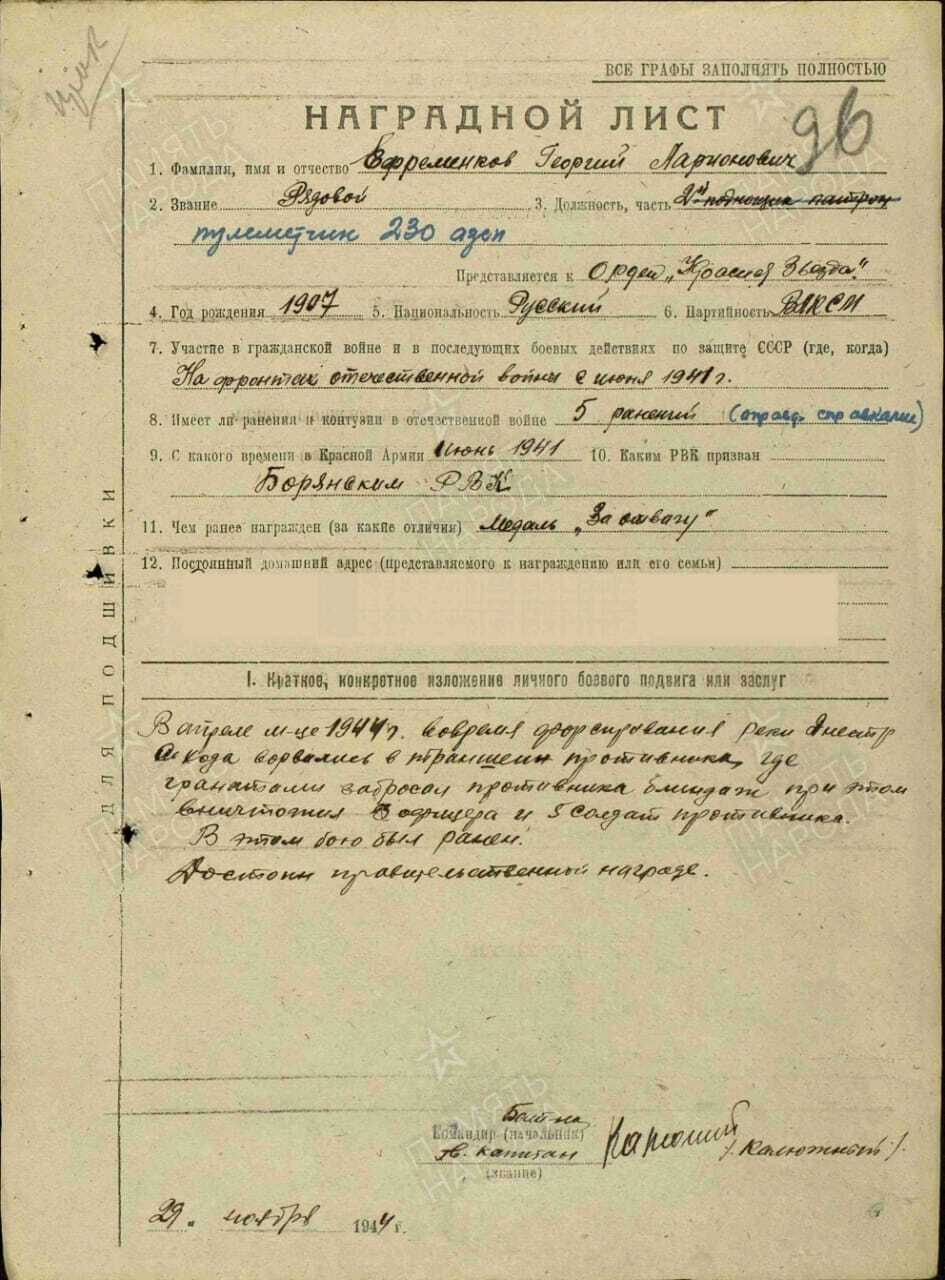 ВСЕ ГРАФЫ ЗАПОЛНЯТЬ ПОЛНОСТЬЮ
НАГРАДНОЙ ЛИСТ
96
1. Фамилия, имя и отчество Ефременков Георгий Ларионович
2. Звание Рядовой 3. Должность, часть 2й подносчик патрон
пулеметчик 230 азсп
Представляется к Орден „Красная Звезда"
4. Год рождения 1907 5. Национальность Русский 6. Партийность ВЛКСМ
7. Участие в гражданской войне и в последующих боевых действиях по защите СССР (где, когда)
На фронтах отечественной войны с июня 1941 г.
8. Имеет ли ранения и контузии в отечественной войне 5 ранений (оправд. справками)
9. С какого времени в Красной Армии Июнь 1941 10. Каким РВК призван
Борянским РВК
11. Чем ранее награжден (за какие отличия) Медаль „За отвагу"
12. Постоянный домашний адрес (представляемого к награждению или его семьи)
ДЛЯ ПОДШИВКИ
I. Краткое, конкретное изложение личного боевого подвига или заслуг
В апреле м-це 1944 г. вовремя форсирования реки Днестр
Когда ворвались в траншеи противника, где
гранатами забросал противника блиндаж при этом
уничтожил 3 офицера и 5 солдат противника.
В этом бою был ранен.
Достоин правительственной награде.
Бат-на
Командир (начальник)
гв. капитан
(звание)
/Калюжный/.
29 „ ноября 1944 г.
ПАМЯТЬ НАРОДА